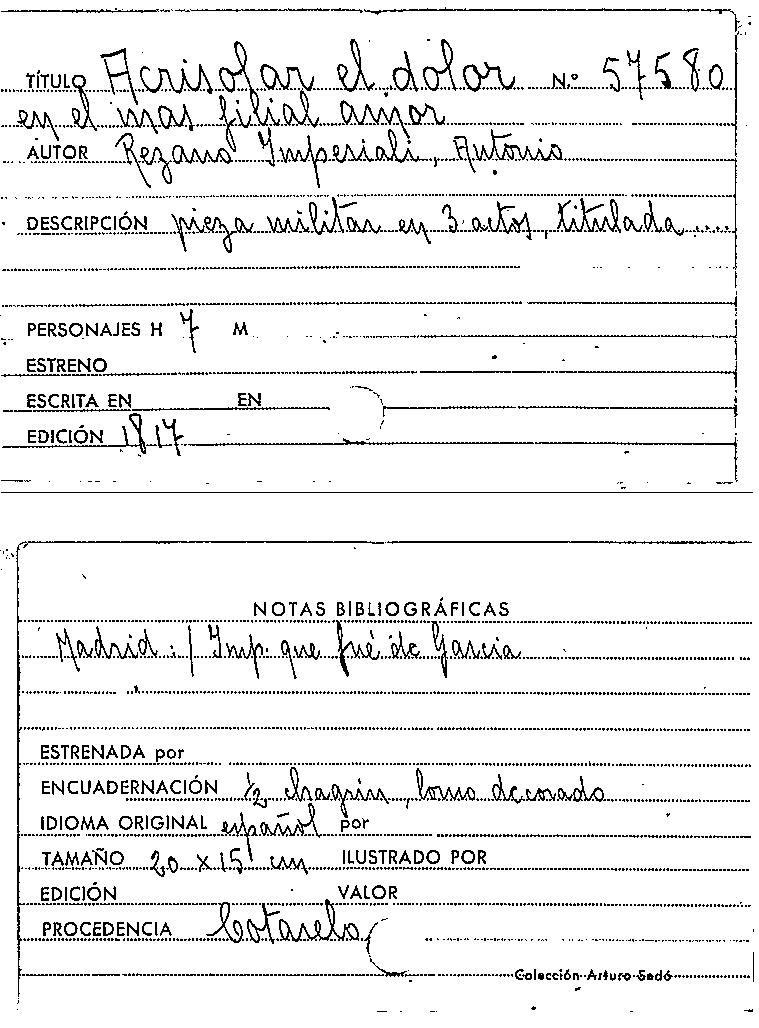 TÍTULO Acrisolar el dolor N.º 57580
en el mas filial amor
AUTOR Rezano Imperiali, Antonio
DESCRIPCIÓN pieza militar en 3 actos, titulada ....
PERSONAJES H 7 M
ESTRENO
ESCRITA EN EN
EDICIÓN 1817
NOTAS BIBLIOGRÁFICAS
Madrid : / Imp. que fué de Garcia
ESTRENADA por
ENCUADERNACIÓN 1/2 chagrin, lomo decorado
IDIOMA ORIGINAL español por
TAMAÑO 20 x 15 cm ILUSTRADO POR
EDICIÓN VALOR
PROCEDENCIA Cotarelo
Colección Arturo Sedó